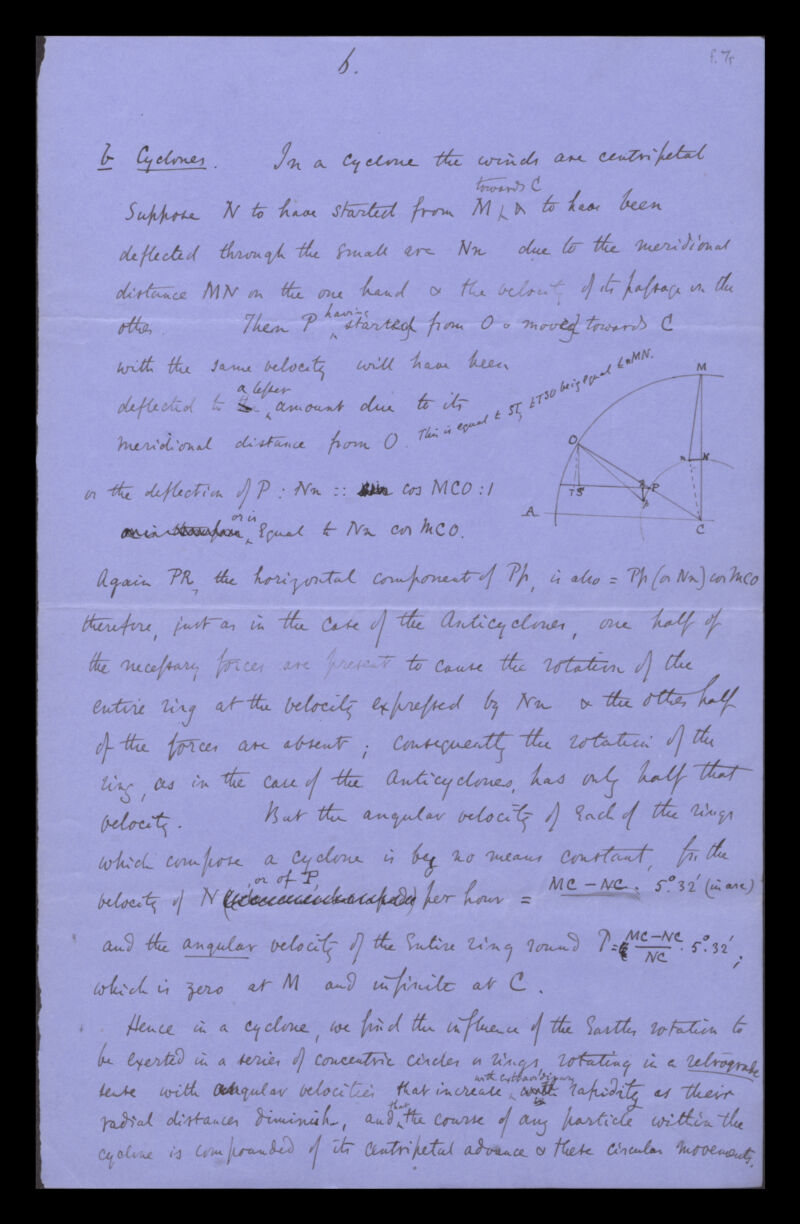 6.
f. 7r
b Cyclones. In a cyclone the winds are centripetal
towards C
Suppose N to have started from M & to have been
deflected through the small arc Nn due to the meridional
distance MN on the one hand & the velocity of its passage on the
other. Then P having started from O & moved towards C
with the same velocity will have been
deflected to a lesser amount due to its
meridional distance from O. This is equal to ST, ∠TSO being equal to nMN.
or the deflection of P : Nn :: cos MCO : 1
or is Equal to Nn cos MCO.
M
O
n N
T S R P
p
A C
Again PR, the horizontal component of Pp, is also = Pp (or Nn) cos MCO
therefore, just as in the case of the Anticyclones, one half of
the necessary forces are present to cause the rotation of the
entire ring at the velocity expressed by Nn & the other half
of the forces are absent; consequently the rotation of the
ring, as in the case of the Anticyclones, has only half that
velocity. But the angular velocity of Each of the rings
which compose a cyclone is by no means constant, for the
velocity of N or of P per hour = MC – NC. 5°. 32' (in arc)
and the angular velocity of the Entire ring round = MC–NC / NC . 5°. 32' ;
which is zero at M and infinite at C.
Hence in a cyclone, we find the influence of the Earths rotation to
be exerted in a series of concentric circles or rings, rotating in a retrograde
sense with angular velocities that increase with extraordinary rapidity as their
radial distances diminish, and that the course of any particle within the
cyclone is compounded of its centripetal advance & these circular movements.